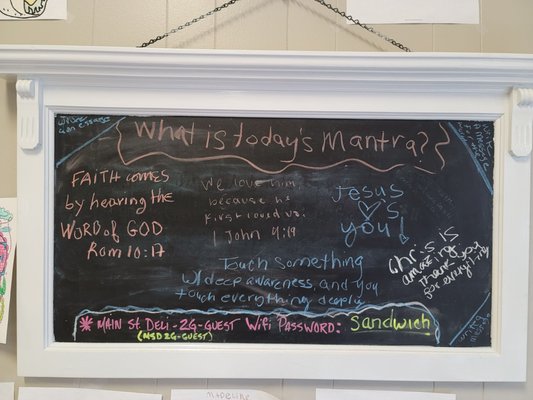 What is today's Mantra?
FAITH comes
by hearing the
WORD of GOD
Rom 10:17
We love him,
because he
first loved us.
1 John 4:19
Jesus
's
you!
Touch Something
w/ deep awareness, and you
touch everything deeply
Chris is
amazing
Thank you
for everything
write
a message
for the
* MAIN ST. DELI - 2G-GUEST WiFi PASSWORD: Sandwich
(MSD 2G-GUEST)
MADELINE